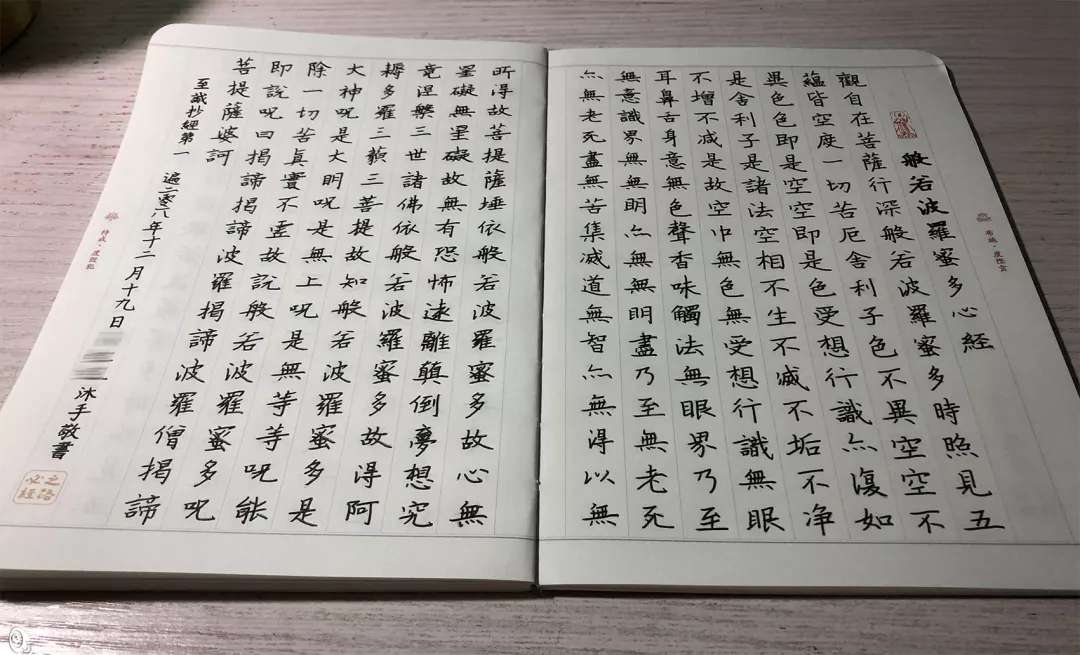 般若波羅蜜多心經
觀自在菩薩行深般若波羅蜜多時照見五
蘊皆空度一切苦厄舍利子色不異空空不
異色色即是空空即是色受想行識亦復如
是舍利子是諸法空相不生不滅不垢不净
不增不減是故空中無色無受想行識無眼
耳鼻舌身意無色聲香味觸法無眼界乃至
無意識界無無明亦無無明盡乃至無老死
亦無老死盡無苦集滅道無智亦無得以無
所得故菩提薩埵依般若波羅蜜多故心無
罣礙無罣礙故無有恐怖遠離顛倒夢想究
竟涅槃三世諸佛依般若波羅蜜多故得阿
耨多羅三藐三菩提故知般若波羅蜜多是
大神呪是大明呪是無上呪是無等等呪能
除一切苦真實不虛故說般若波羅蜜多呪
即說呪曰揭諦揭諦波羅揭諦波羅僧揭諦
菩提薩婆訶
至誠抄經第一遍二零一八年十二月十九日 沐手敬書
必經之路